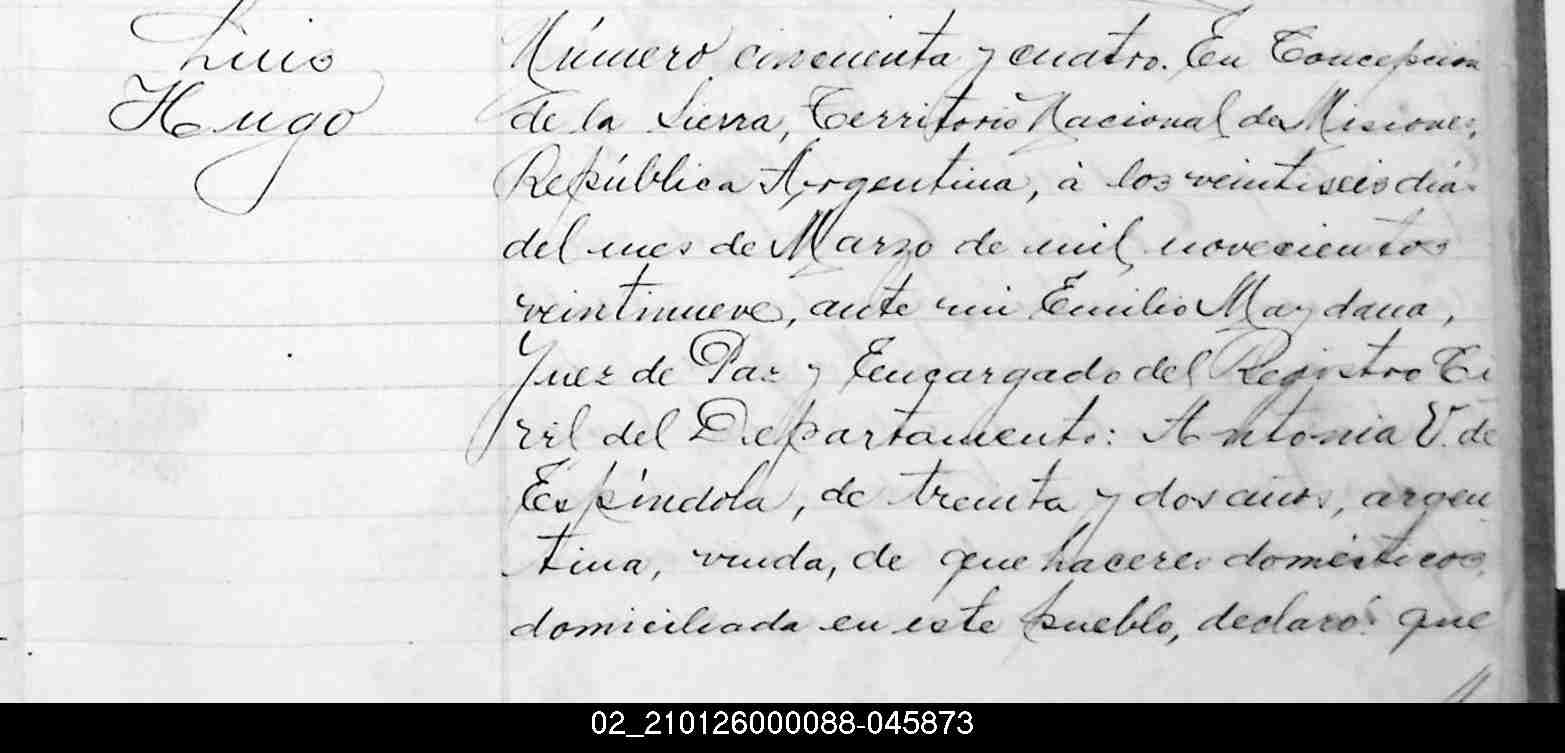 Luis
Hugo
Número cincuenta y cuatro. En Concepción
de la Sierra, Territorio Nacional de Misiones,
República Argentina, á los veintiseis dias
del mes de Marzo de mil novecientos
veintinueve, ante mi Emilio Maydana,
Juez de Paz y Encargado del Registro Ci
vil del Departamento: Antonia V. de
Espíndola, de treinta y dos años, argen
tina, viuda, de que haceres domésticos,
domiciliada en este pueblo, declaró: que
02_210126000088-045873